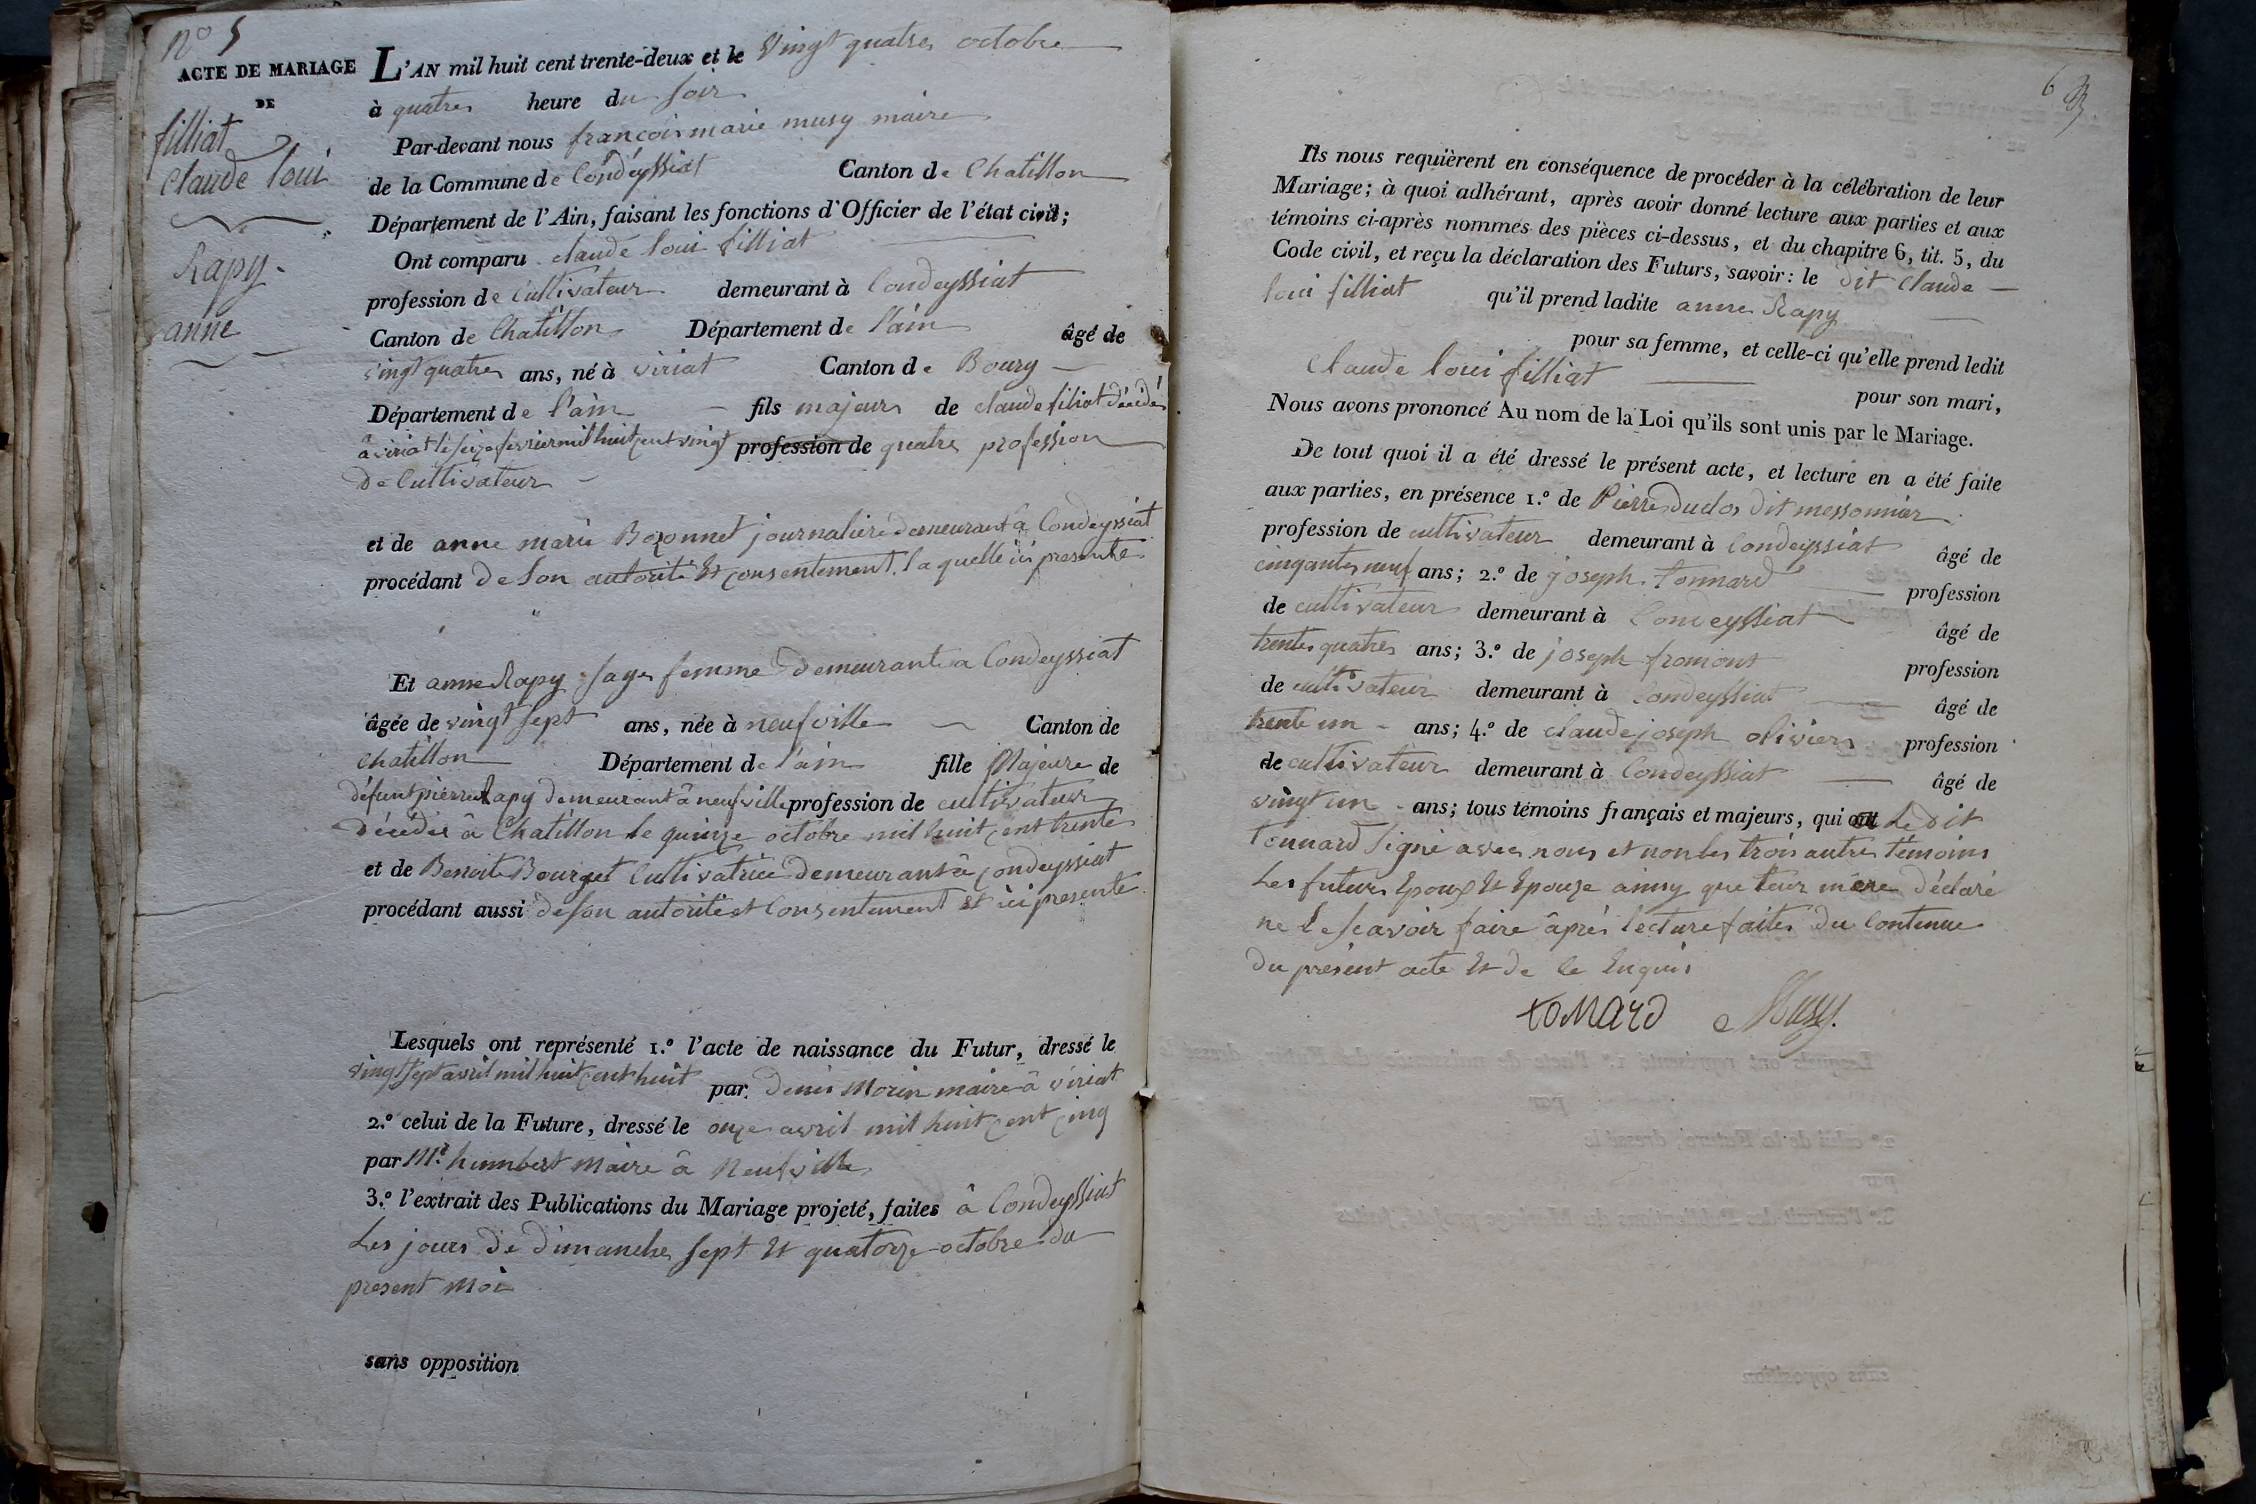 N° 5
ACTE DE MARIAGE
DE
filliat
claude loui
Rapy
anne
L'AN mil huit cent trente-deux et le vingt quatres octobre
à quatres heure du soir
Par-devant nous françois marie musy maire
de la Commune de Condeyssiat Canton de Chatillon
Département de l'Ain, faisant les fonctions d'Officier de l'état civil;
Ont comparu claude loui filliat
profession de Cultivateur demeurant à Condeyssiat
Canton de Chatillon Département de l'ain âgé de
vingt quatres ans, né à viriat Canton de Bourg
Département de l'ain fils majeurs de claude filiat décédé
à viriat le seize fevrier mil huit cent vingt profession de quatres profession
de Cultivateur
et de anne marie Bozonnet journalière demeurant à Condeyssiat
procédant de son autorité Et consentement laquelle ici presente
Et anne Rapy sages femme demeurante a Condeyssiat
âgée de vingt sept ans, née à neufville Canton de
chatillon Département de l'ain fille Majeure de
défunt pierre Rapy demeurant à neufville profession de cultivateur
décédés à Chatillon le quinze octobre mil huit cent trente
et de Benoite Bourget Cultivatrice demeurant à condeyssiat
procédant aussi de son autorité et Consentement et ici presente
Lesquels ont représenté 1.° l'acte de naissance du Futur, dressé le
vingt sept avril mil huit cent huit par denis Morin maire à viriat
2.° celui de la Future, dressé le onze avril mil huit cent cinq
par Mr humbert Maire à Neufville
3.° l'extrait des Publications du Mariage projeté, faites à Condeyssiat
Les jours de dimanches sept Et quatorze octobre du
present moi
sans opposition
6
Ils nous requièrent en conséquence de procéder à la célébration de leur
Mariage; à quoi adhérant, après avoir donné lecture aux parties et aux
témoins ci-après nommés des pièces ci-dessus, et du chapitre 6, tit. 5, du
Code civil, et reçu la déclaration des Futurs, savoir: le dit Claude
loui filliat qu'il prend ladite anne Rapy
pour sa femme, et celle-ci qu'elle prend ledit
Claude loui filliat pour son mari,
Nous avons prononcé Au nom de la Loi qu'ils sont unis par le Mariage.
De tout quoi il a été dressé le présent acte, et lecture en a été faite
aux parties, en présence 1.° de Pierre duclos dit messonnier
profession de cultivateur demeurant à Condeyssiat âgé de
cinqantes neuf ans; 2.° de joseph tonnard profession
de cultivateur demeurant à Condeyssiat âgé de
trentes quatres ans; 3.° de joseph fromont profession
de cultivateur demeurant à Condeyssiat âgé de
trente un ans; 4.° de claude joseph oliviers profession
de cultivateur demeurant à Condeyssiat âgé de
vingt un ans; tous témoins français et majeurs, qui ont Le dit
tonnard signé avec nous et non les trois autres témoins
Les futurs Epoux Et Epouze ainsy que leur mère déclaré
ne le scavoir faire après lecture faites du Contenue
du présent acte Et de ce Enquis
tonard Musy